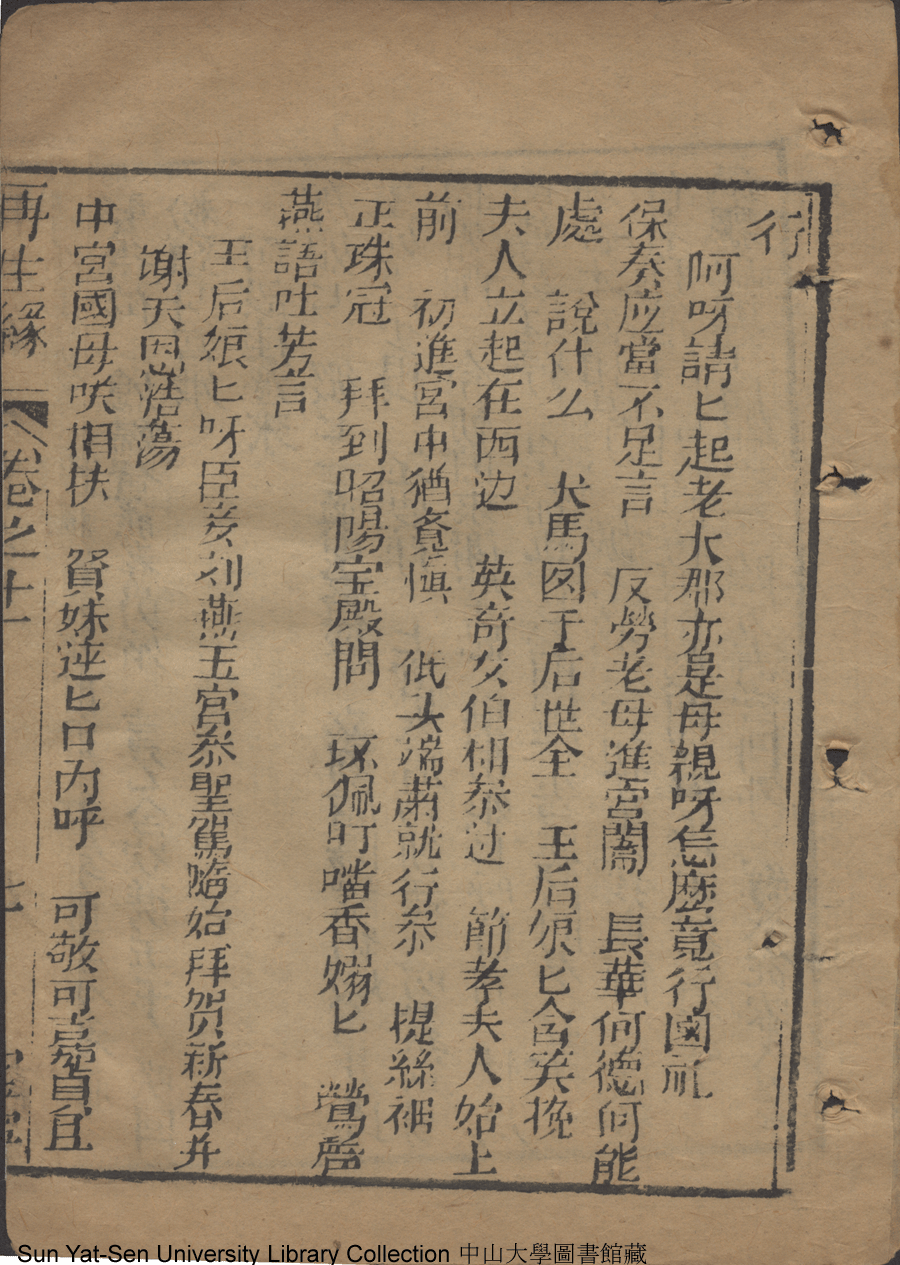 行
阿呀請匕起老大郡亦是母親呀怎麽竟行國礼
保奏应當不足言 反勞老母進宮闈 長華何德何能
處 說什么 犬馬图于后世全 王后娘匕含笑挽
夫人立起在西边 英奇女伯相叅过 節孝夫人始上
前 初進宮中猶竟慎 低头端肅就行叅 提絲裙
正珠冠 拜到昭陽宝殿間 玫佩叮噹香嫋匕 鶯聲
燕語吐芳言
王后娘匕呀臣妾刘燕玉官叅聖駕始拜贺新春并
謝天恩浩蕩
中宮國母咲相扶 賢妹連匕口內呼 可敬可嘉自
再生緣 卷之十一
Sun Yat-Sen University Library Collection 中山大學圖書館藏